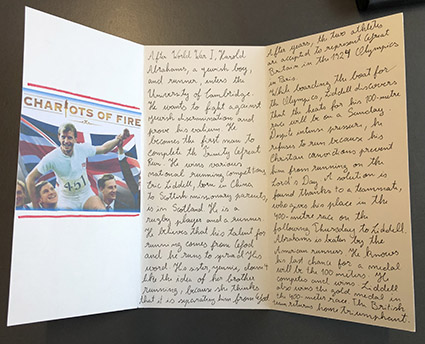 CHARIOTS OF FIRE
451
After World War I, Harold
Abrahams, a jewish boy,
and runner, enters the
University of Cambridge.
He wants to fight against
jewish discrimination and
prove his valium. He
becomes the first man to
complete the Trinity Great
Run. He wins various
national running competitions
Eric Liddell, born in China
to Scottish missionary parents,
is in Scotland. He is a
rugby player and a runner.
He belives that his talent for
running comes from God
and he runs to spread His
word. His sister, Jennie, doesn't
like the idea of her brother
running, because she thinks
that it is separating him from God
After years, the two athletes
are accepted to represent Great
Britain in the 1924 Olympics
in Paris.
While boarding the boat for
the Olympics, Liddell discovers
that the heats for his 100-metre
race will be on a Sunday
Despite intense pressure, he
refuses to run because his
Christian convictions prevent
him from running on the
Lord's Day. A solution is
found thanks to a teammate,
who gives his place in the
400-metre race on the
following Thursday to Liddell.
Abrahams is beaten by the
American runners. He knows
his last chance for a medal
will be the 100 metres. He
competes and wins. Liddell
also wins the gold medal in
the 400-metre race. The British
team returns home triumphant.